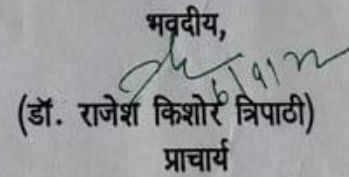 भवदीय,
(डॉ. राजेश किशोर त्रिपाठी)
प्राचार्य